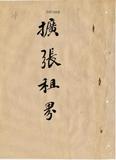 擴張租界